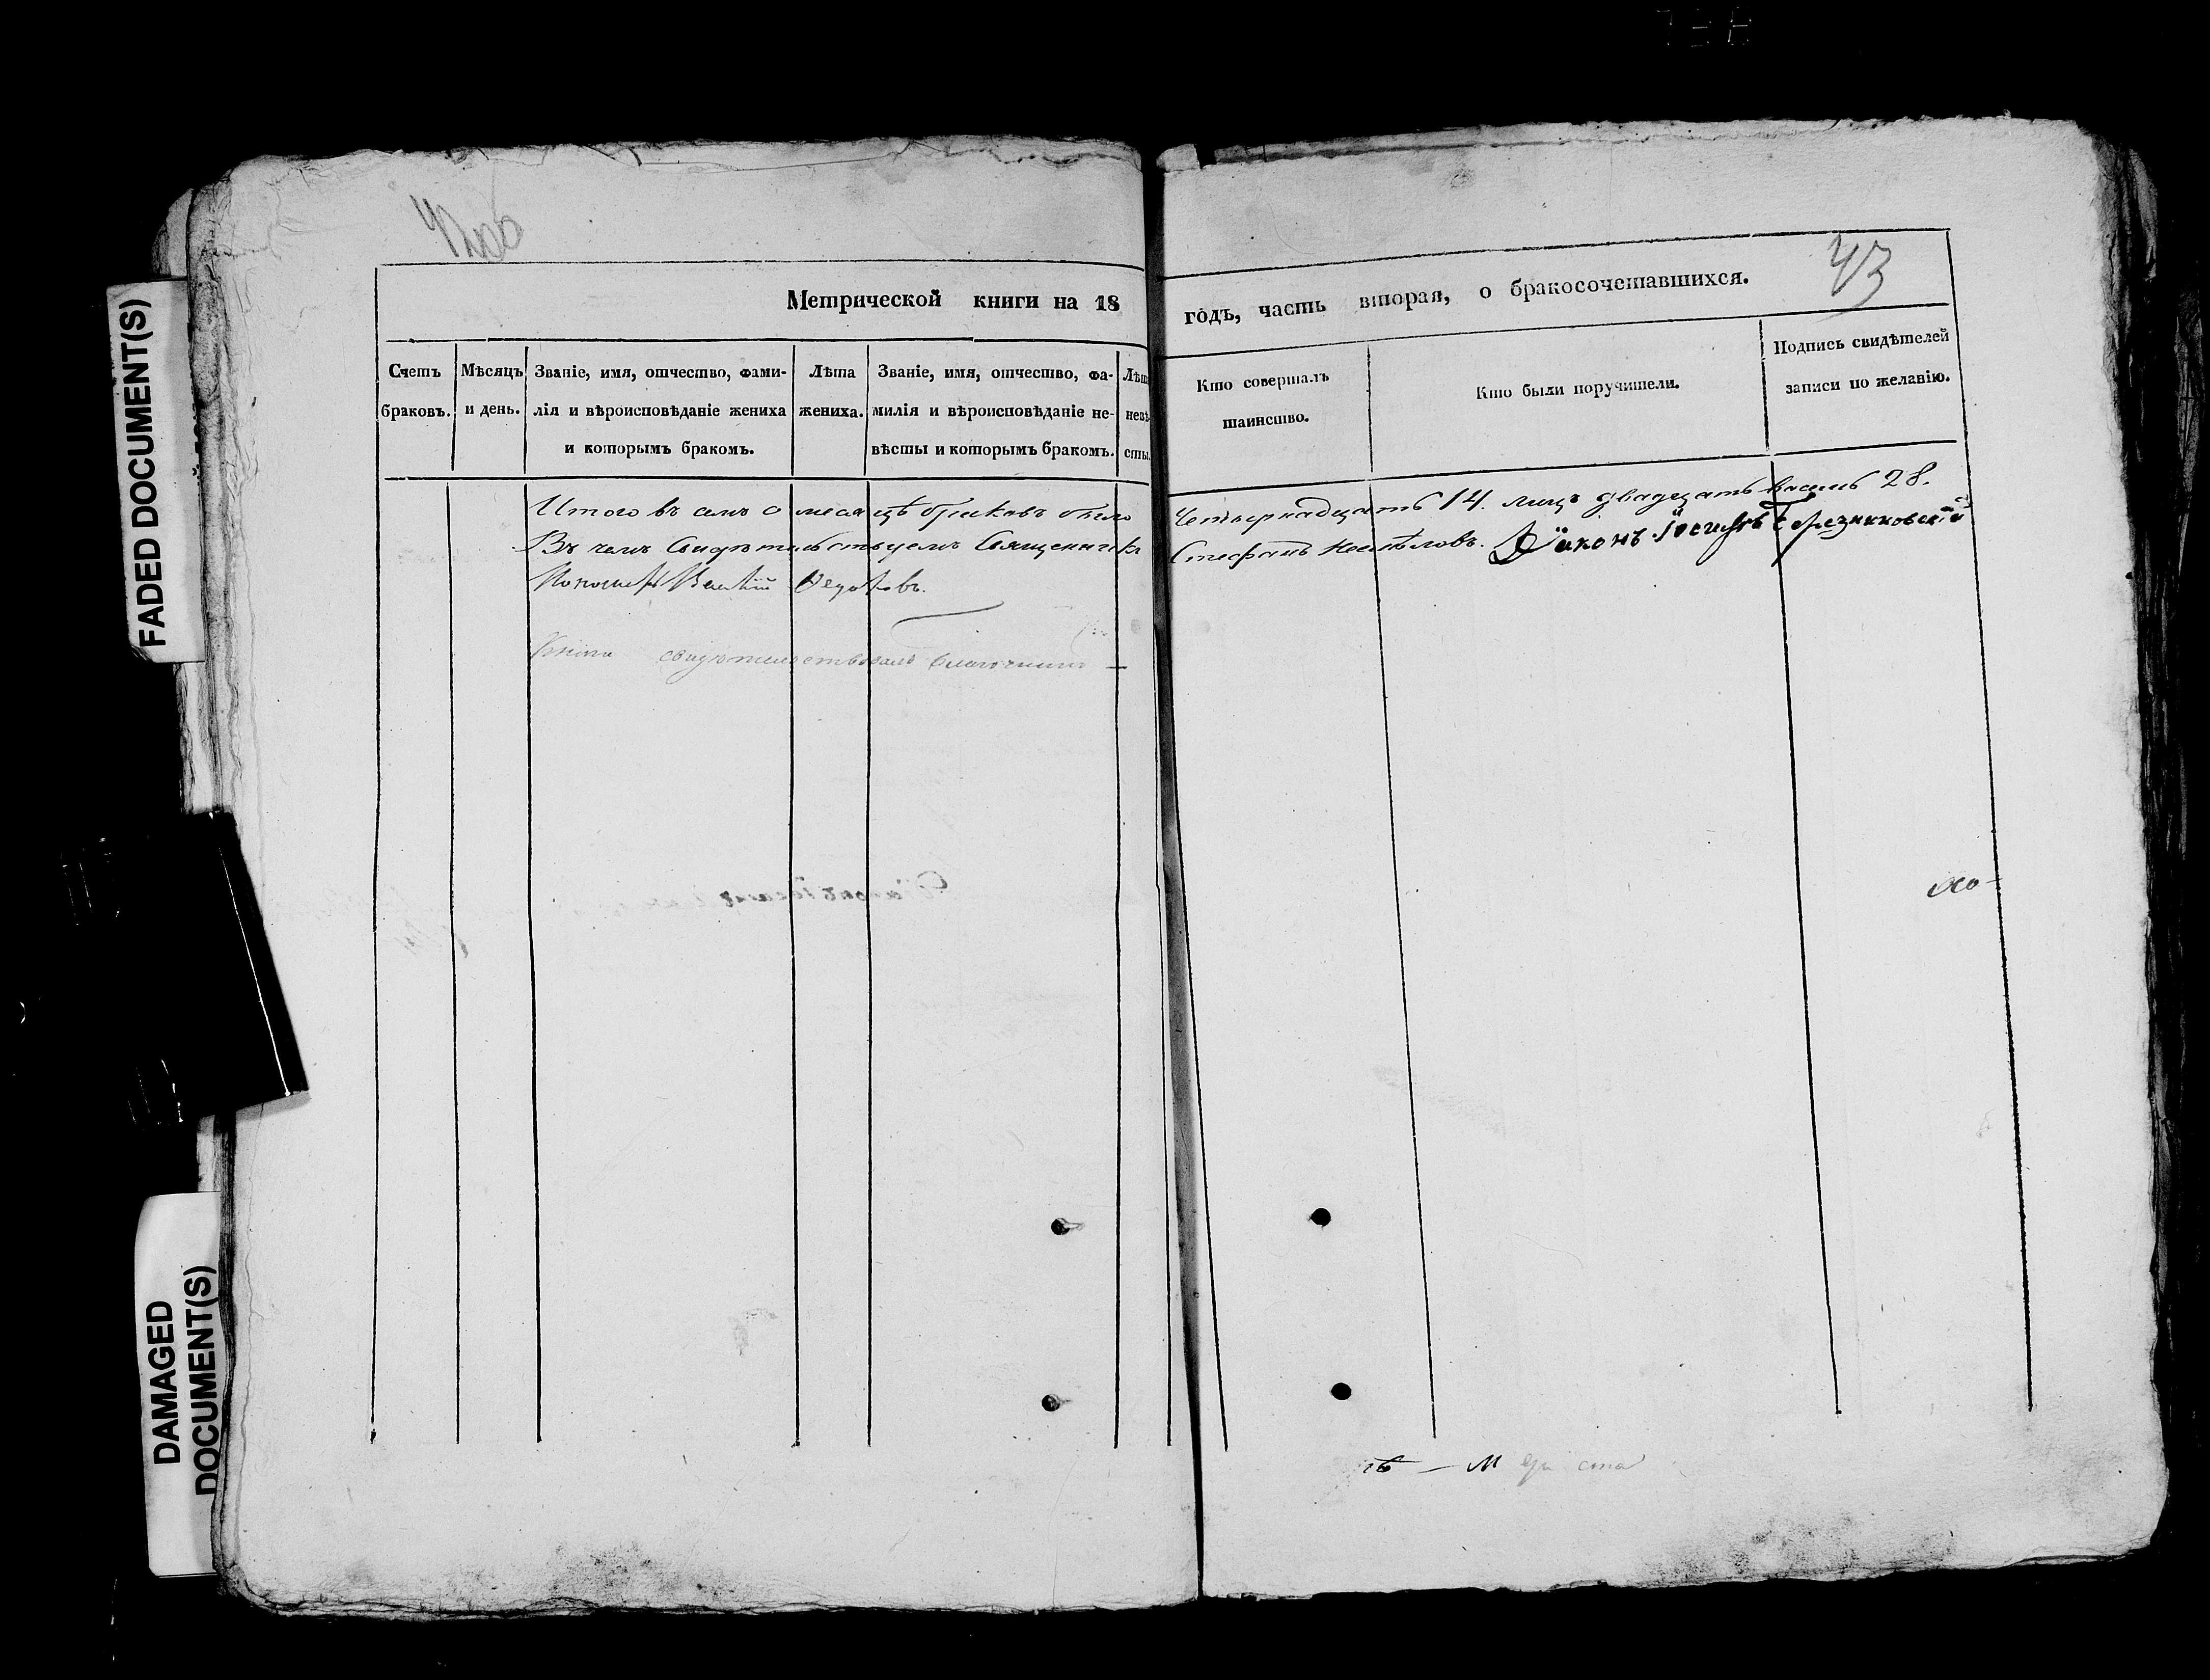 FADED DOCUMENT(S)
DAMAGED
DOCUMENT(S)
42об
43
Метрической книги на 18 годъ, часть вторая, о бракосочетавшихся.
Счетъ
браковъ.
Мѣсяцъ
и день.
Званіе, имя, отчество, фами-
лія и вѣроисповѣданіе жениха
и которымъ бракомъ.
Лѣта
жениха.
Званіе, имя, отчество, фа-
милія и вѣроисповѣданіе не-
вѣсты и которымъ бракомъ.
Лѣта
невѣ-
сты.
Кто совершалъ
таинство.
Кто были поручители.
Подпись свидѣтелей
записи по желанію.
Итого въ семъ месяцѣ браковъ было четырнадцать 14. лицъ двадцать восемь 28.
Въ чемъ Свидѣтельствуемъ Священникъ Стефанъ Діаконъ Іосифъ Березниковскій
Пономарь
свидѣтельствовалъ благочинный —